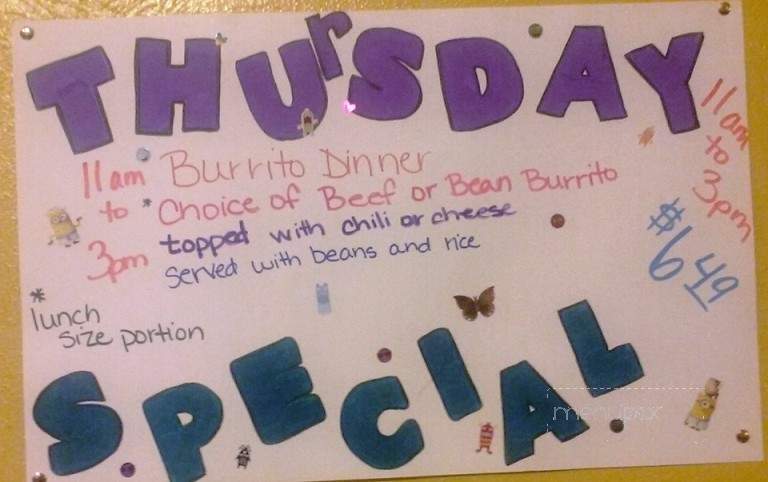 THUrSDAY
11am Burrito Dinner
to *Choice of Beef or Bean Burrito
3pm topped with chili or cheese
served with beans and rice
11am
to
3pm
$6.49
*
lunch
size portion
SPECIAL
menupix